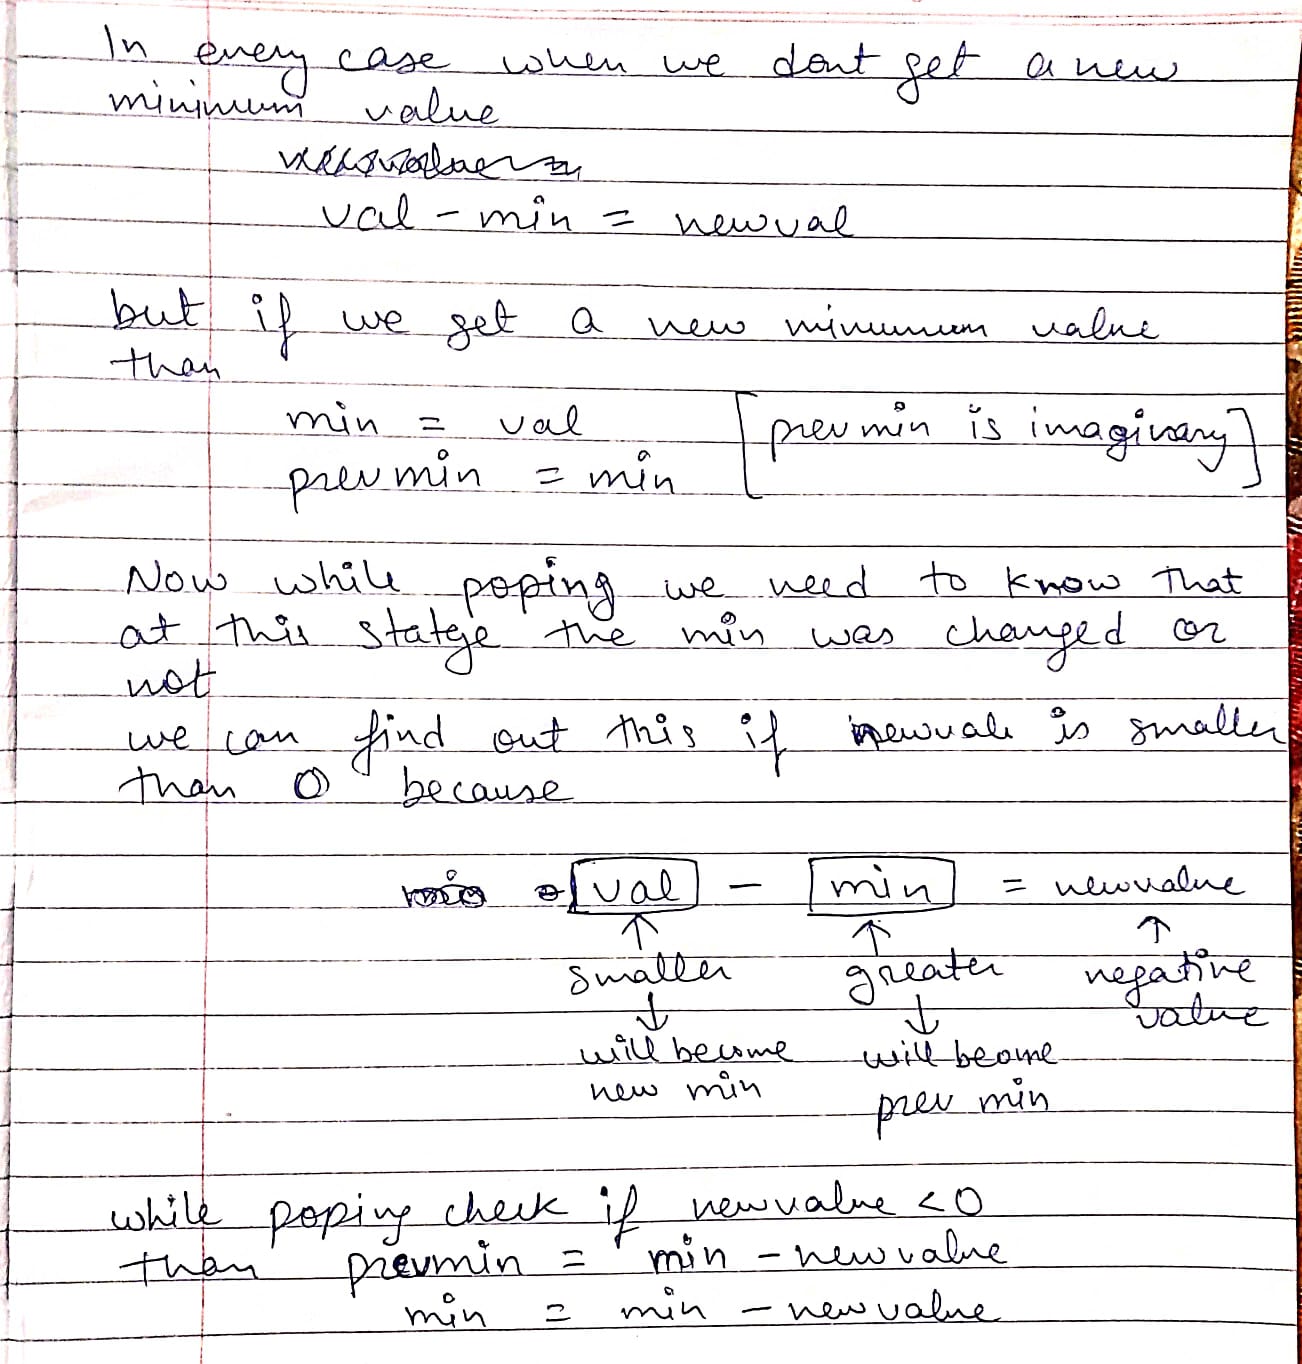 In every case when we dont get a new
minimum value
val - min = newval
but if we get a new minimum value
than
min = val [prevmin is imaginary]
prevmin = min
Now while poping we need to know that
at this statge the min was changed or
not
we can find out this if newvale is smaller
than 0 because
val - min = newvalue
↑ ↑ ↑
smaller greater negative
↓ ↓ value
will become will beome
new min prev min
while poping check if newvalue <0
then prevmin = min - newvalue
min = min - newvalue